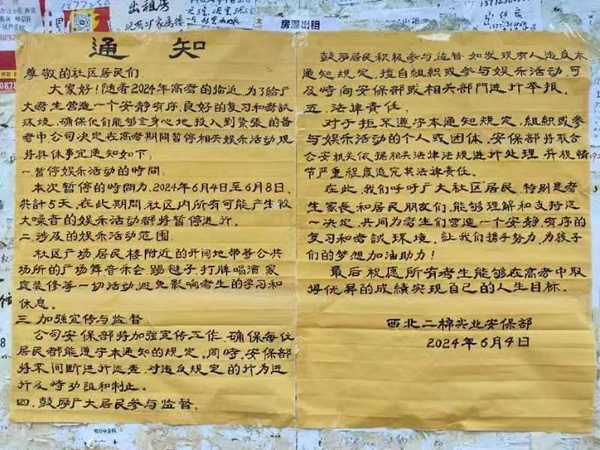 出租房
房屋出租
通知
尊敬的社区居民们:
大家好!随着2024年高考的临近,为了给广
大考生营造一个安静有序,良好的复习和考试
环境,确保他们能够全身心地投入到紧张的备
考中公司决定在高考期间暂停相关娱乐活动,现
将具体事宜通知如下:
一暂停娱乐活动的时间:
本次暂停的时间为2024年6月4日至6月8日,
共计5天,在此期间,社区内所有可能产生较
大噪音的娱乐活动都将暂停进行。
二.涉及的娱乐活动范围:
社区广场居民楼附近的开间地带等公共
场所的广场舞音乐会、踢毽子、打牌唱酒、家
庭装修等一切活动,避免影响考生的学习和
休息。
三.加强宣传与监督:
公司安保部将加强宣传工作,确保每位
居民都能遵守本通知的规定,同时,安保部
将不间断进行巡查,对违反规定的行为进
行及时劝阻和制止。
四.鼓励广大居民参与监督:
鼓励居民积极参与监督,如发现有人违反本
通知规定,擅自组织或参与娱乐活动,可
及时向安保部或相关部门进行举报。
五.法律责任:
对于拒不遵守本通知规定,组织或参
与娱乐活动的个人或团体,安保部将联合
公安机关依据相关法律法规进行处理,并视情
节严重程度追究其法律责任。
在此,我们呼吁广大社区居民,特别是考
生家长和居民朋友们,能够理解和支持这
一决定,共同为考生们营造一个安静有序的
复习和考试环境,让我们携手努力,为孩子
们的梦想加油助力!
最后,祝愿所有考生能够在高考中取
得优异的成绩实现自己的人生目标。
西北二棉实业安保部
2024年6月4日